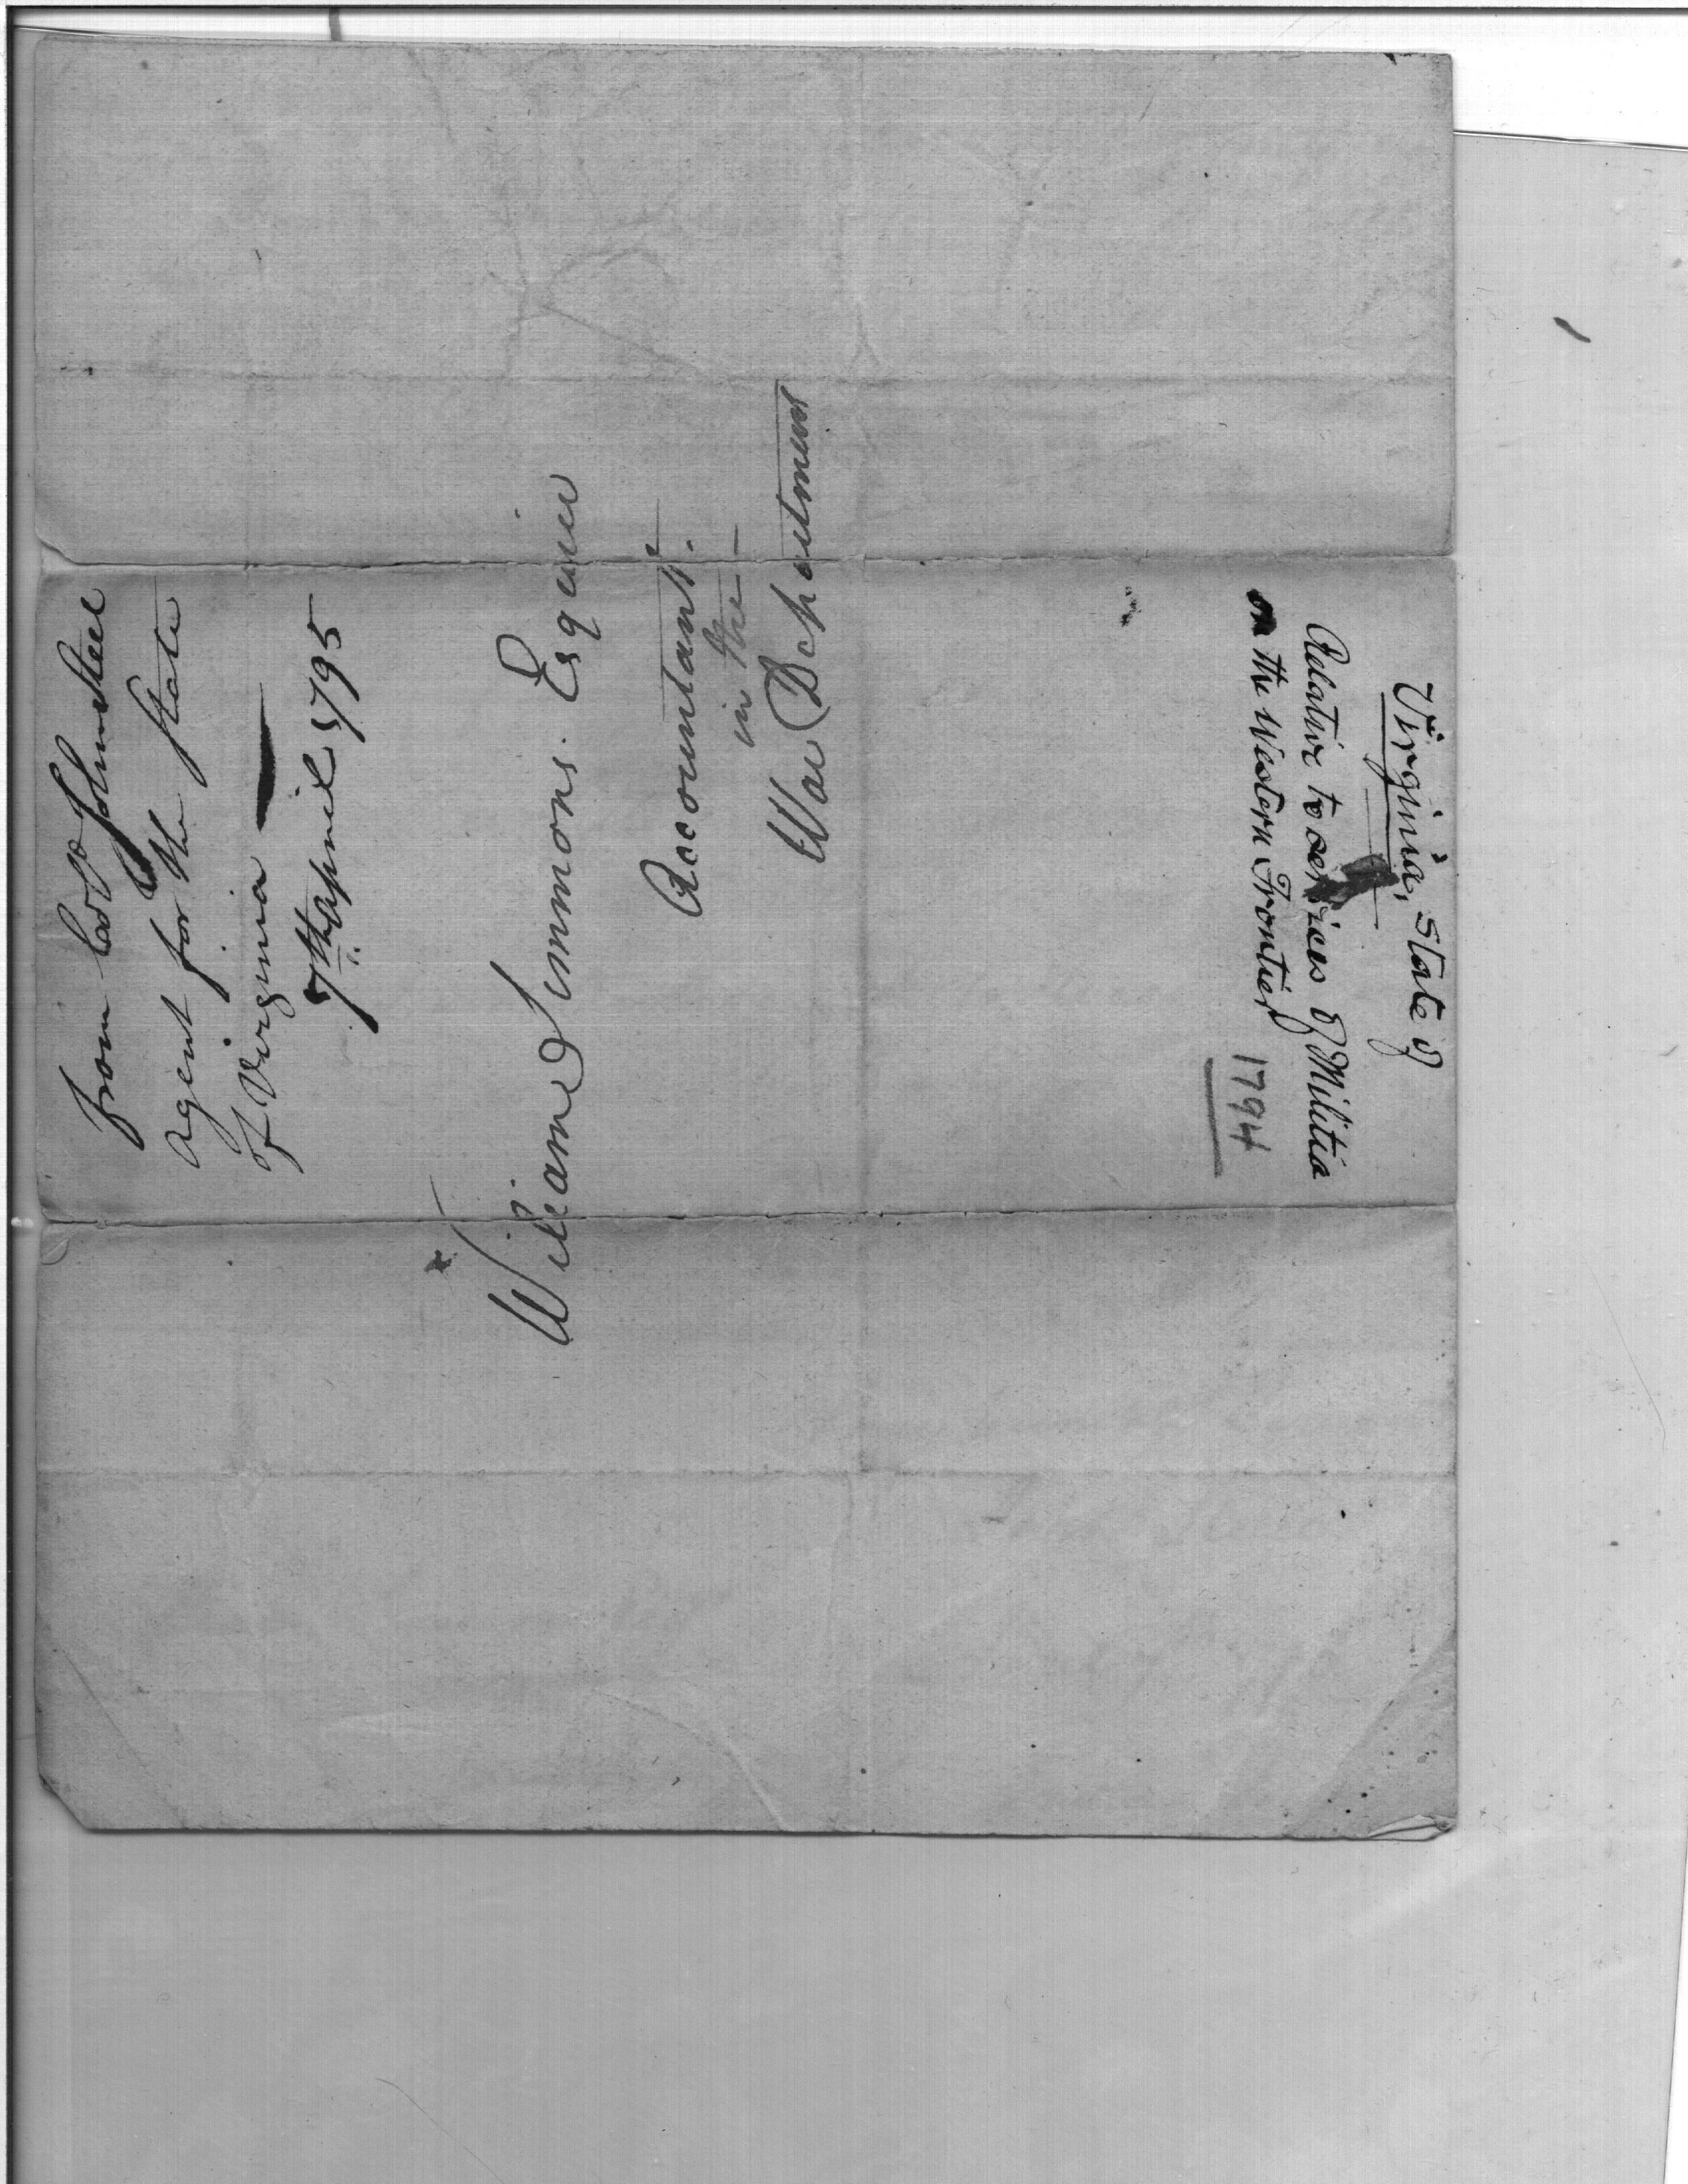 from Coll John Steel
agent for the State
of Virginia
7th April 1795
William Simmons. Esquier
Accountant.
in the
War Department
Virginia, State of
Relative to services of Militia
on the Western Frontier
1794